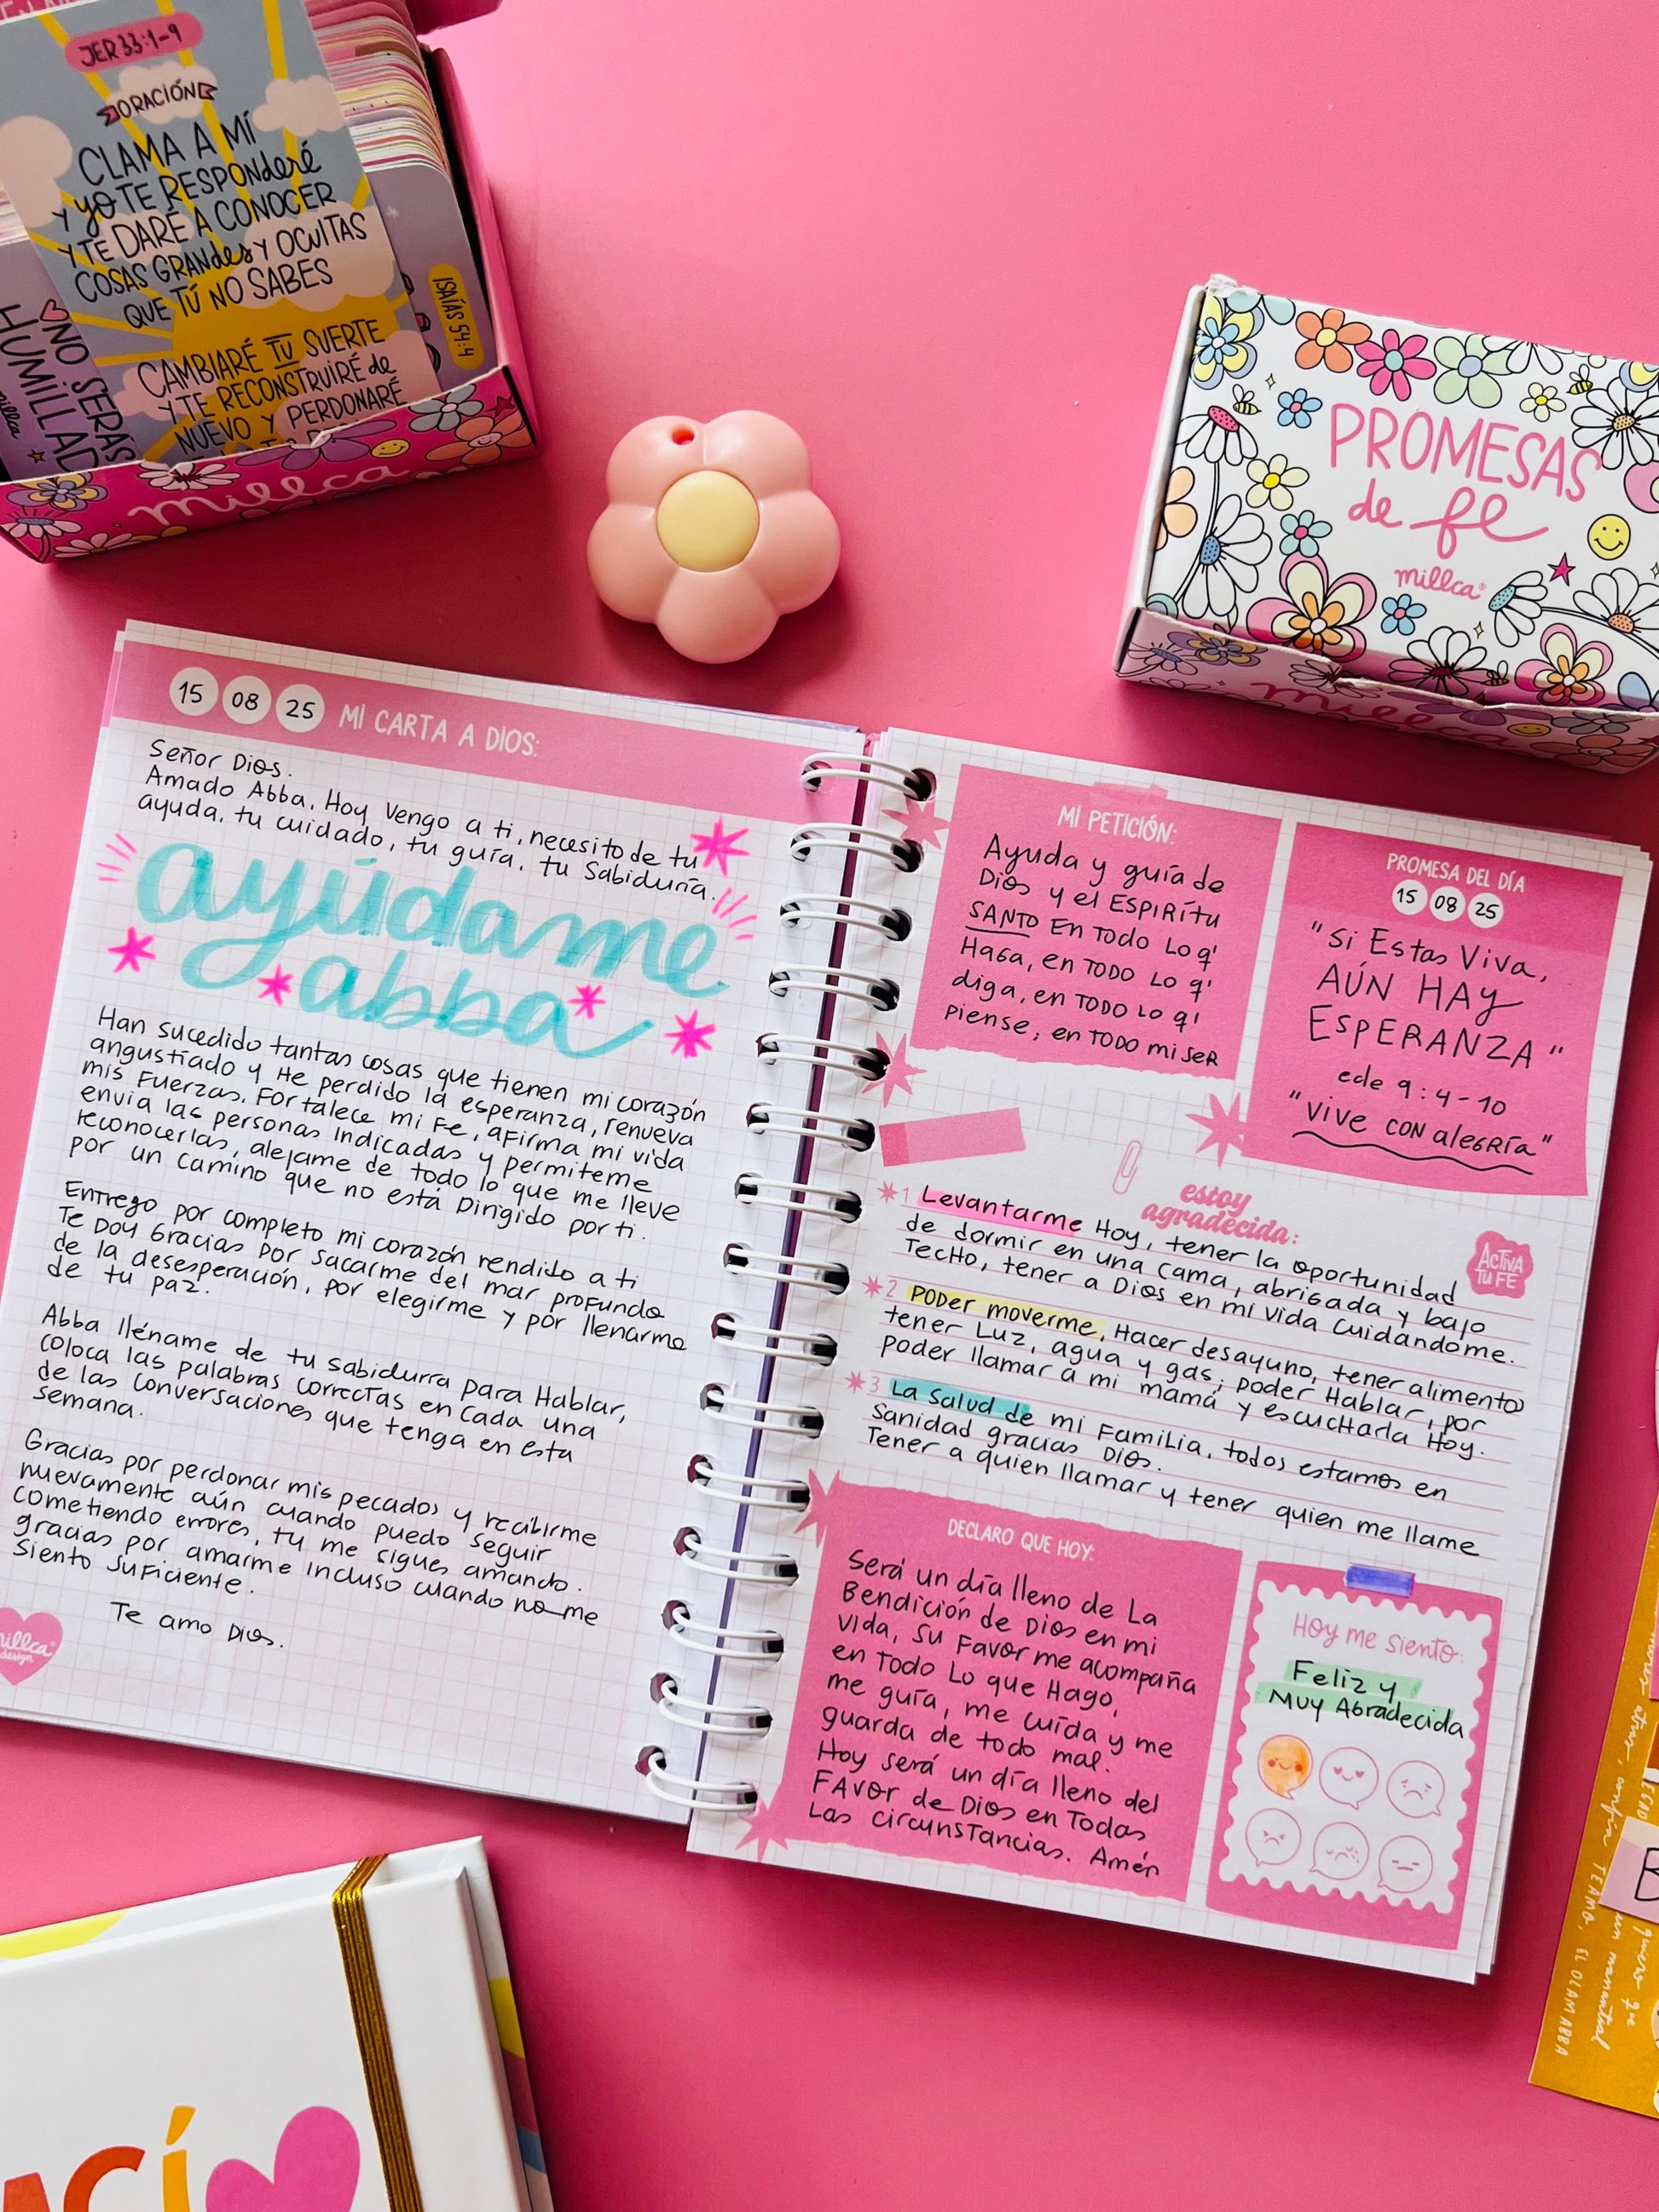 JER 33:1-9
ORACIÓN
CLAMA A MÍ
Y YO TE RESPONDERÉ
Y TE DARÉ A CONOCER
COSAS GRANDES Y OCULTAS
QUE TÚ NO SABES
CAMBIARÉ TU SUERTE
Y TE RECONSTRUIRÉ de
NUEVO Y PERDONARÉ
NO SERÁS
HUMILLAD
millca
ISAÍAS 54:4
millca
PROMESAS
de fe
millca
millca
15 08 25 MI CARTA A DIOS:
Señor Dios.
Amado Abba, Hoy vengo a ti, necesito de tu
ayuda, tu cuidado, tu guía, tu Sabiduría.
ayúdame
abba
Han sucedido tantas cosas que tienen mi corazón
angustiado y He perdido la esperanza, renueva
mis Fuerzas, Fortalece mi Fe, aFirma mi vida
envia las personas indicadas y permiteme
reconocerlas, alejame de todo lo que me lleve
por un camino que no está Dirigido por ti.
Entrego por completo mi corazón rendido a ti
Te Doy Gracias por sacarme del mar profundo
de la desesperación, por elegirme y por llenarme
de tu paz.
Abba lléname de tu sabidurra para Hablar,
coloca las palabras correctas en cada una
de las conversaciones que tenga en esta
semana.
Gracias por perdonar mis pecados y recibirme
nuevamente aún cuando puedo seguir
cometiendo errores, tu me sigues amando.
gracias por amarme incluso cuando no me
siento suficiente.
Te amo Dios.
millca
design
MI PETICIÓN:
Ayuda y guía de
Dios y el ESPIRÍTU
SANTO En Todo Lo q'
Haga, en TODO Lo q'
diga, en TODO Lo q'
piense, en TODO mi SER
PROMESA DEL DÍA
15 08 25
"Si Estas Viva,
AÚN HAY
ESPERANZA"
ecle 9:4-10
"vive CON alegría"
estoy
agradecida:
1 Levantarme Hoy, tener la oportunidad
de dormir en una cama, abrigada y bajo
TecHo, tener a Dios en mi vida cuidándome.
ACTIVA
TU FE
2 PODER moverme, Hacer desayuno, tener alimento
tener Luz, agua y gas, poder Hablar, por
poder llamar a mi mamá y escucHarla Hoy.
3 La Salud de mi Familia, todos estamos en
Sanidad gracias Dios.
Tener a quien llamar y tener quien me llame
DECLARO QUE HOY:
Será un día lleno de La
Bendición de Dios en mi
vida, Su Favor me acompaña
en Todo Lo que Hago,
me guía, me cuída y me
guarda de todo mal.
Hoy será un día lleno del
FAVor de Dios en Todas
Las circunsTancias. Amén
HOY ME SIENTO:
Feliz y
Muy Agradecida
TE AMO, EL OLAM ABBA
un manantial